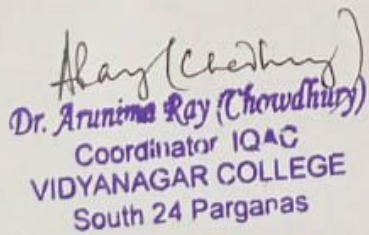 ARay (Chowdhury)
Dr. Arunima Ray (Chowdhury)
Coordinator IQAC
VIDYANAGAR COLLEGE
South 24 Parganas